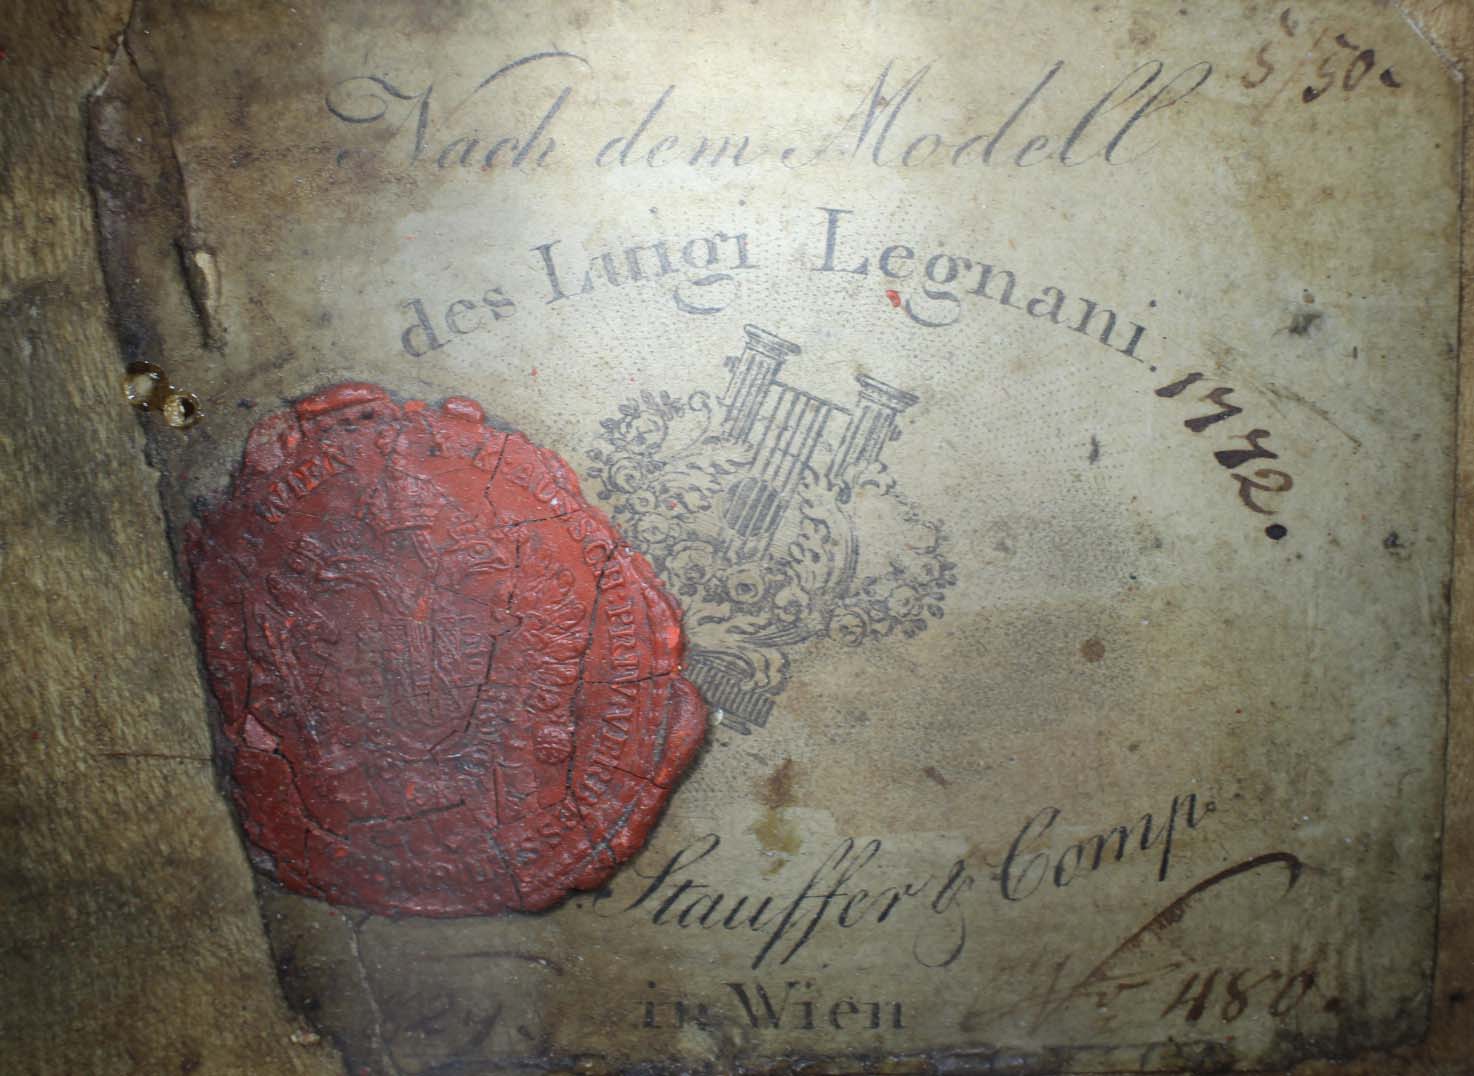 5/50.
Nach dem Modell
des Luigi Legnani.
1772.
WIEN
K. AUS. SCH. PRIV. VERBES.
Stauffer & Comp.
in Wien
No 480.